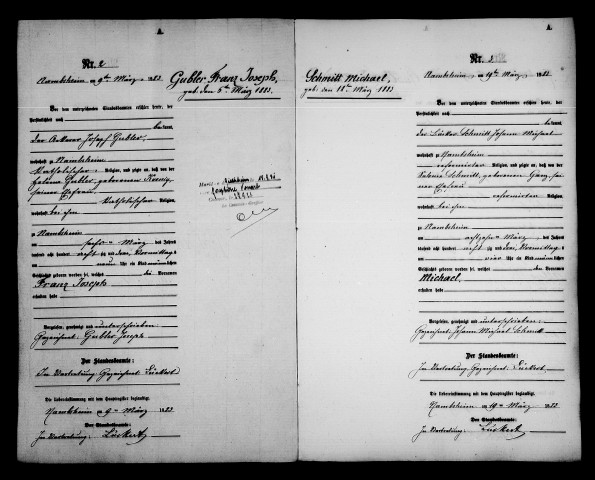 A.
Nr. 2
Namsheim am 9ten März 1883
Gubler Franz Joseph,
geb. den 5ten März 1883.
Vor dem unterzeichneten Standesbeamten erschien heute, der
Persönlichkeit nach
bekannt,
der Ackerer Joseph Gubler,
wohnhaft zu Namsheim
katholischer Religion, und zeigte an, daß von der
Gubler, geborenen
katholischer Religion,
wohnhaft bei ihm
zu Namsheim
am März des Jahres
tausend acht hundert acht zig und drei, Vormittags
um neun Uhr ein Kind männlichen
Geschlechts geboren worden sei, welches die Vornamen
Franz Joseph
erhalten habe
Vorgelesen, genehmigt und unterschrieben:
Gezeichnet: Gubler Joseph
Der Standesbeamte:
In Vertretung: Gezeichnet: Lückert
Die Uebereinstimmung mit dem Hauptregister beglaubigt.
Namsheim am 9ten März 1883
Der Standesbeamte:
In Vertretung: Lückert
A.
Nr. 3
Schmitt Michael,
geb. den 18ten März 1883
Namsheim am 19ten März 1883
Vor dem unterzeichneten Standesbeamten erschien heute, der
Persönlichkeit nach
bekannt,
der Schmitt Johann Michael
wohnhaft zu Namsheim
reformirter Religion, und zeigte an, daß von der
Schmitt, geborenen
reformirten Religion,
wohnhaft bei ihm
zu Namsheim
am März des Jahres
tausend acht hundert acht zig und drei, Vormittags
um vier Uhr ein Kind männlichen
Geschlechts geboren worden sei, welches den Vornamen
Michael,
erhalten habe
Vorgelesen, genehmigt und unterschrieben:
Gezeichnet: Johann Michael Schmitt
Der Standesbeamte:
In Vertretung: Gezeichnet: Lückert
Die Uebereinstimmung mit dem Hauptregister beglaubigt.
Namsheim am 19ten März 1883
Der Standesbeamte:
In Vertretung: Lückert